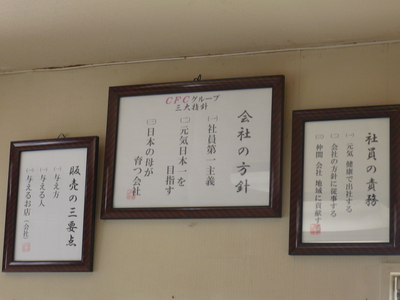 販売の三要点
㈠与え方
㈡与える人
㈢与えるお店(会社)
CFCグループ
三大指針
会社の方針
㈠社員第一主義
㈡元気日本一を
目指す
㈢日本の母が
育つ会社
社員の責務
㈠元気 健康で出社する
㈡会社の方針に従事する
㈢仲間 会社 地域に貢献す